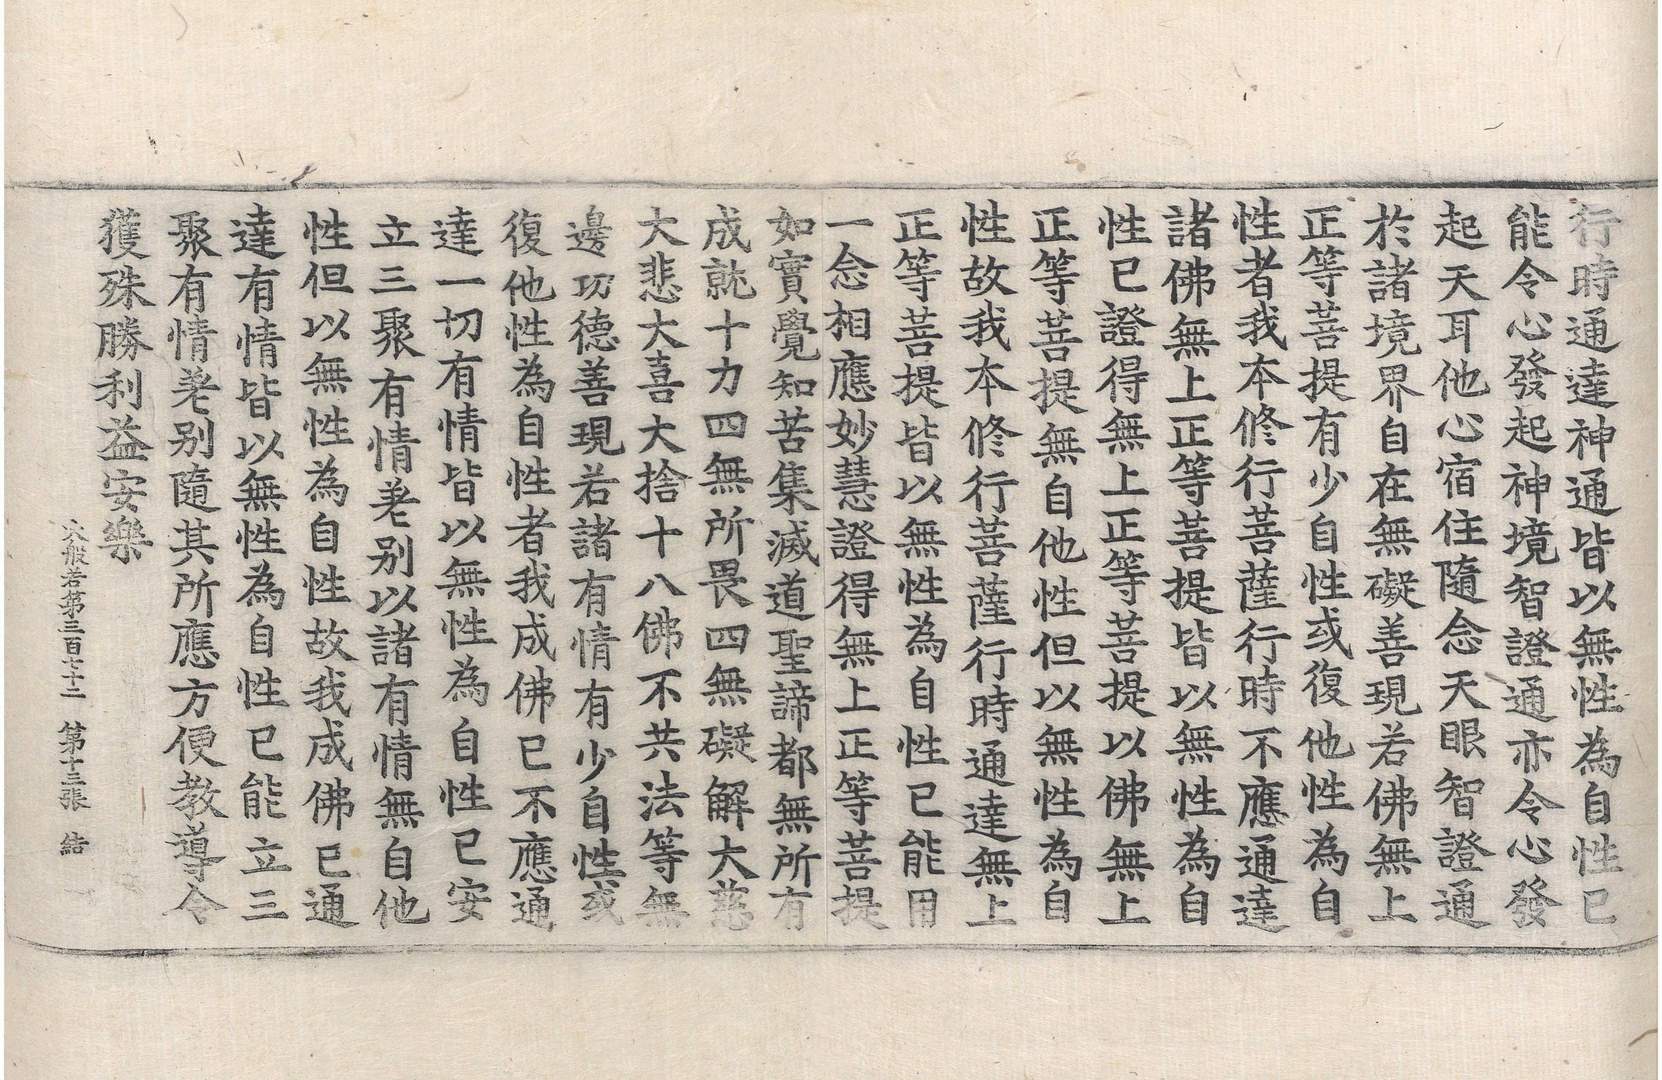 行時通達神通皆以無性為自性已
能令心發起神境智證通亦令心發
起天耳他心宿住隨念天眼智證通
於諸境界自在無礙善現若佛無上
正等菩提有少自性或復他性為自
性者我本修行菩薩行時不應通達
諸佛無上正等菩提皆以無性為自
性已證得無上正等菩提以佛無上
正等菩提無自他性但以無性為自
性故我本修行菩薩行時通達無上
正等菩提皆以無性為自性已能用
一念相應妙慧證得無上正等菩提
如實覺知苦集滅道聖諦都無所有
成就十力四無所畏四無礙解大慈
大悲大喜大捨十八佛不共法等無
邊功德善現若諸有情有少自性或
復他性為自性者我成佛已不應通
達一切有情皆以無性為自性已安
立三聚有情差别以諸有情無自他
性但以無性為自性故我成佛已通
達有情皆以無性為自性已能立三
聚有情差别隨其所應方便教導令
獲殊勝利益安樂
大般若第三百七十二 第十三張 結